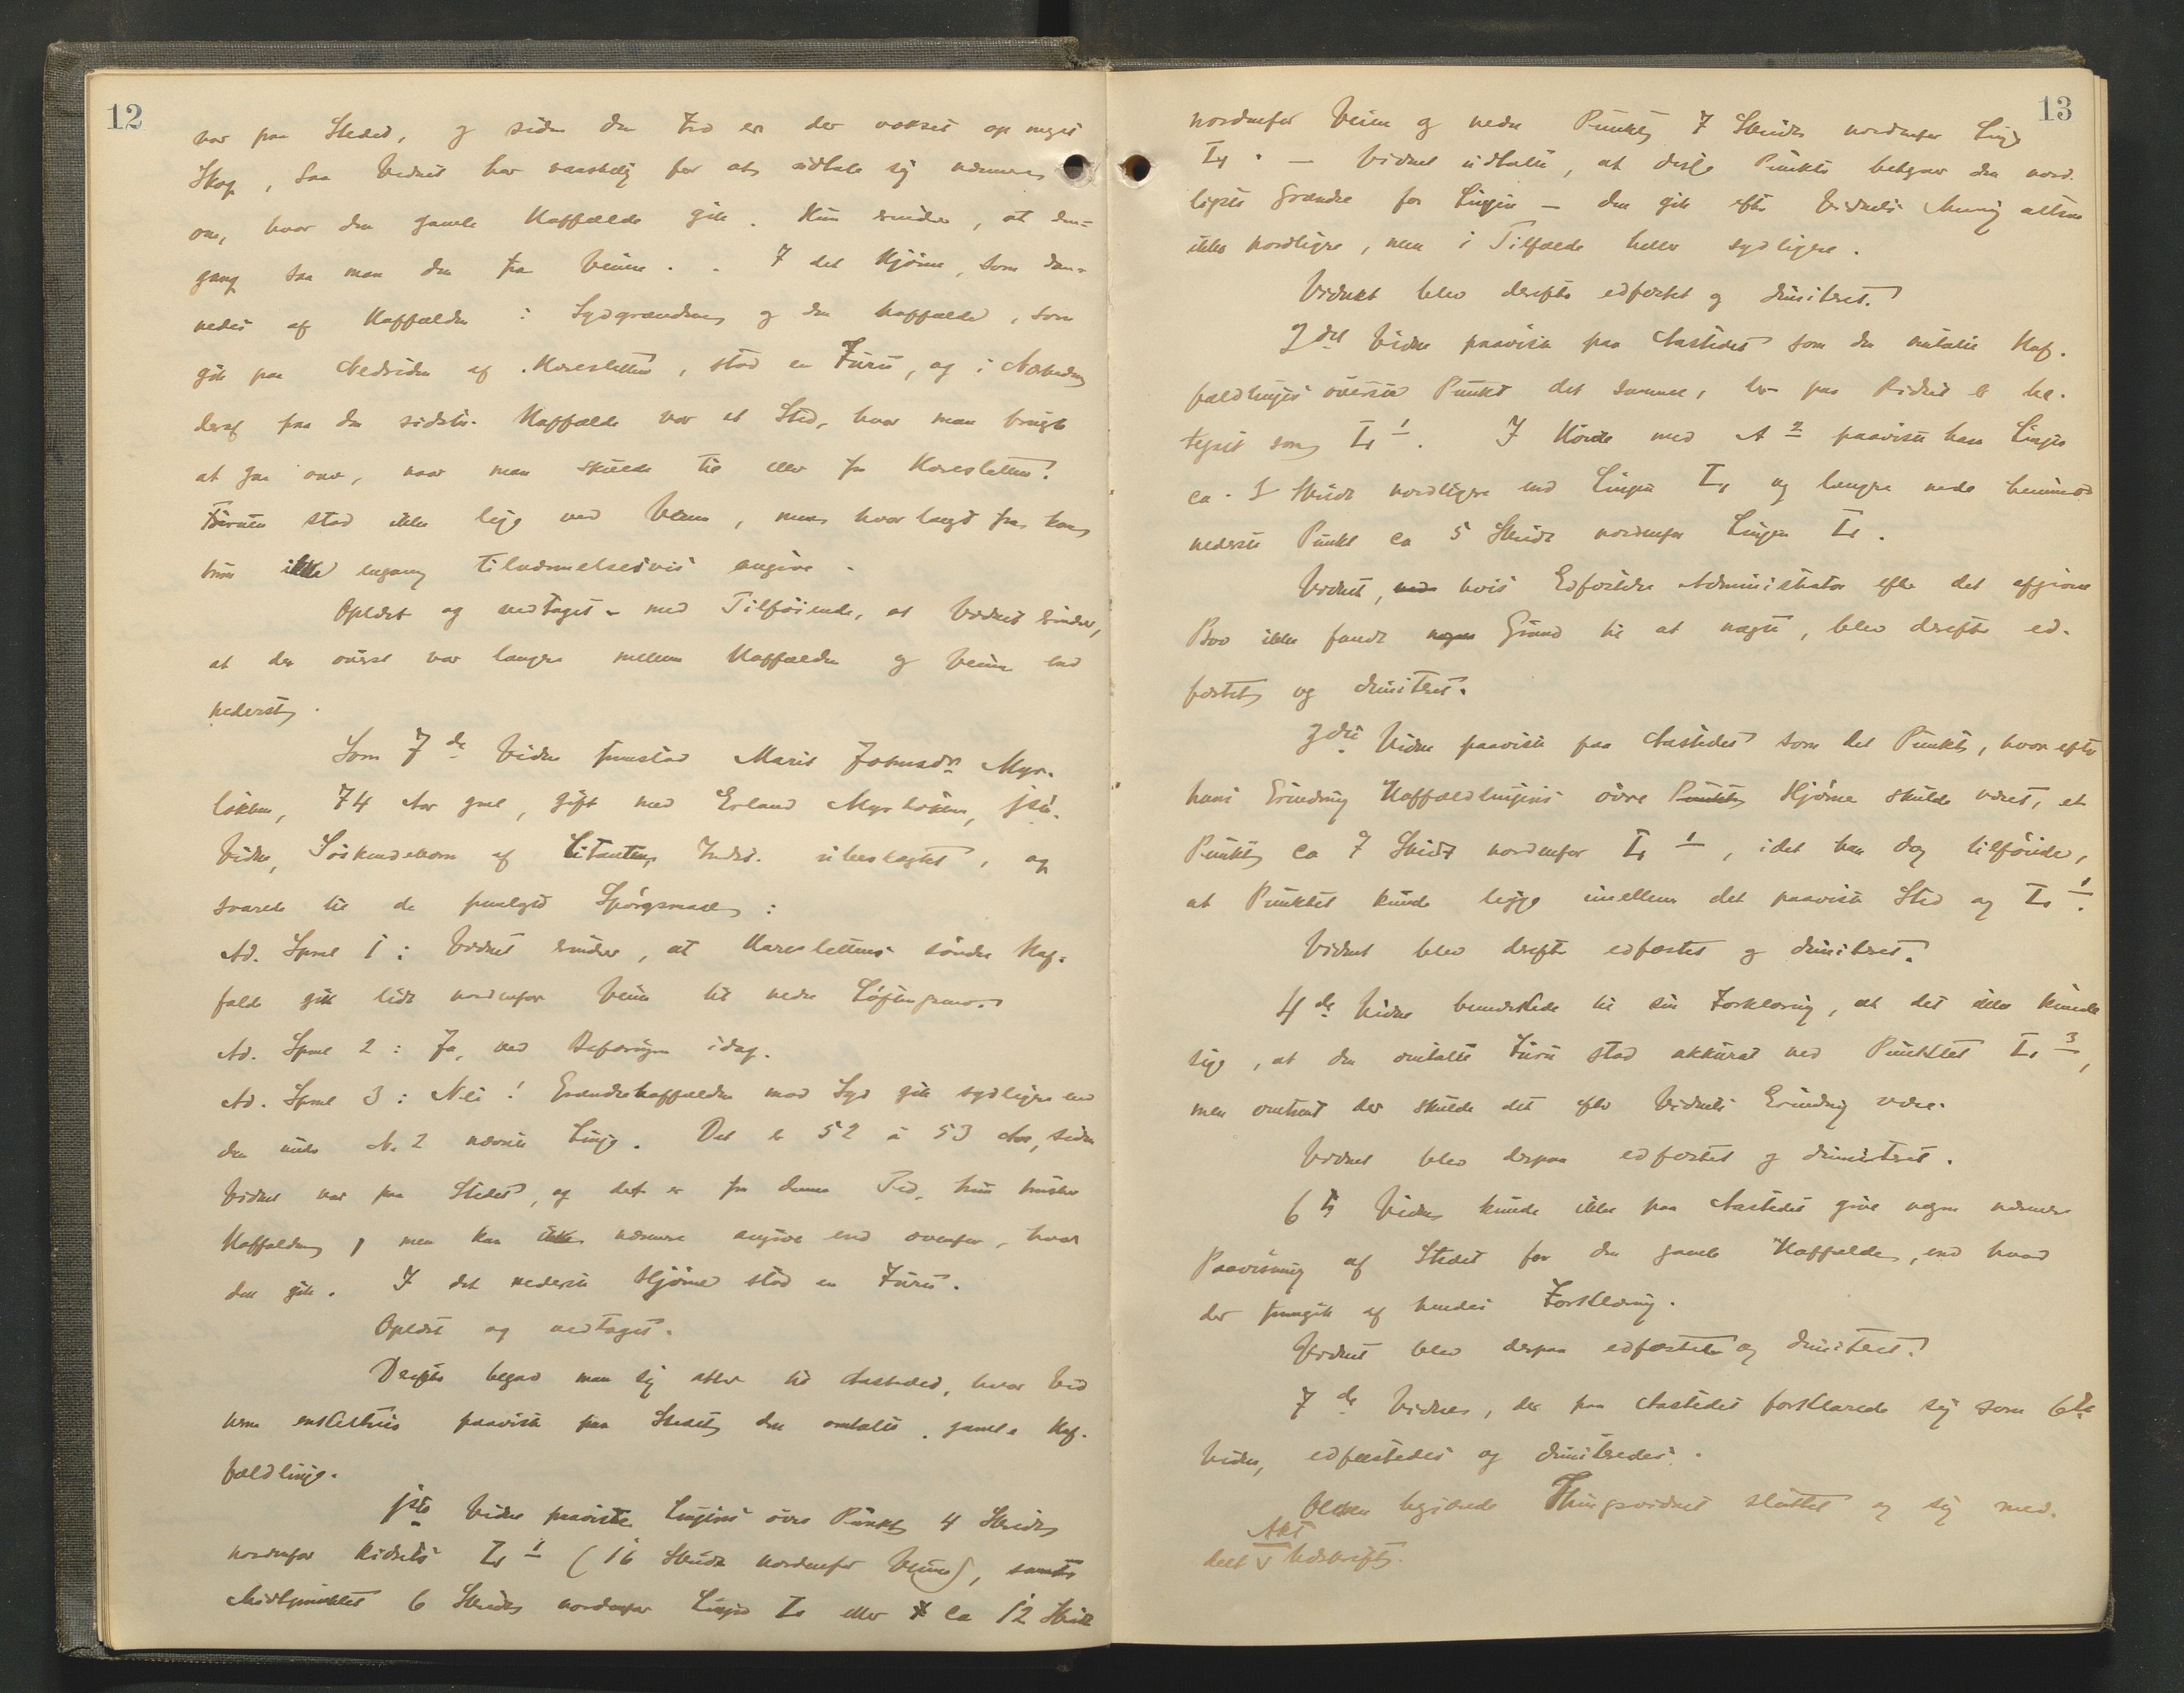 12
var paa Stedet, og siden den Tid er der vokset op meget
Skog, saa Vidnet har vanskelig for at udtale sig nærmere
om, hvor den gamle Havfælde gik. Hun erindrer, at den-
gang saa man den fra Veien. I det Hjörne, som dan-
nedes af Havfælden i Sydgrændsen og den Havfælde, som
gik paa Nedsiden af Koresletten, stod en Furu, og i Nærheden
deraf paa den sidste Havfælde var et Sted, hvor man brugte
at gaa over, naar man skulde til eller fra Koresletten.
Furuen stod ikke lige ved Veien, men hvor langt fra kan
hun ikke engang tilnærmelsesvis angive.
Oplæst og vedtaget med Tilföiende, at Vidnet erindrer,
at der överst var længere mellem Havfælden og Veien end
nederst.
Som 7de Vidne fremstod Marit Johnsdr Myr-
løkken, 74 Aar gml, gift med Erland Myrløkken, 1ste
Vidne, Söskendebarn af Citanten, Indst. ubeslægtet, og
svarede til de fremlagte Spörgsmaal:
Ad. Spml 1: Vidnet erindrer, at Koreslettens söndre Hav-
fælde gik lidt nordenfor Veien til nedre
Ad. Spml 2: Ja, ved Befaringen idag.
Ad. Spml 3: Nei! Grændsehavfælden mod Syd gik sydligere end
den under No 2 nævnte Linje. Det er 52 à 53 Aar, siden
Vidnet var paa Stedet, og det er fra denne Tid, hun husker
Havfælden, men kan ikke nærmere angive end ovenfor, hvor
den gik. I det nederste Hjörne stod en Furu.
Oplæst og vedtaget.
Derefter begav man sig atter til Aastedet, hvor Vid
nerne enkeltvis paaviste paa Stedet den omtalte gamle Hav-
fældlinje.
1ste Vidne paaviste Linjens övre Punkt 4 Skridt
nordenfor Ridsets L1 (16 Skridt nordenfor Veien), samt
Midtpunktet 6 Skridt nordenfor Linjen L eller ca 12 Skridt
13
nordenfor Veien og nedre Punkt 7 Skridt nordenfor Linje
L. — Vidnet udtalte, at disse Punkter betegner den nord-
ligste Grændse for Linjen — den gik efter Vidnets Mening altsaa
ikke nordligere, men i Tilfælde heller sydligere.
Vidnet blev derefter edfæstet og dimitteret.
2det Vidne paaviste paa Aastedet som den omtalte Hav-
fældlinjes överste Punkt det samme, der paa Ridset er be-
tegnet som L1. I Höide med A2 paaviste han Linjen
ca. 1 Skridt nordligere end Linjen L og længre nede henimod
nederste Punkt ca 5 Skridt nordenfor Linjen L.
Vidnet, hvis Edfæstelse Administrator efter det afgivne
ikke fandt Grund til at nægte, blev derefter ed-
fæstet og dimitteret.
3die Vidne paaviste paa Aastedet som det Punkt, hvor efter
hans Erindring Havfældlinjens övre Hjörne skulde været, et
Punkt ca 7 Skridt nordenfor L1, idet han dog tilföiede,
at Punktet kunde ligge imellem det paaviste Sted og L1.
Vidnet blev derefter edfæstet og dimitteret.
4de Vidne bemærkede til sin Forklaring, at det ikke kunde
sige, at den omtalte Furu stod akkurat ved Punktet L3,
men omtrent der skulde det efter Vidnets Erindring være.
Vidnet blev derpaa edfæstet og dimitteret.
6te Vidne kunde ikke paa Aastedet give nogen nærmere
Paavisning af Stedet for den gamle Havfælde, end hvad
der fremgik af hendes Forklaring.
Vidnet blev derpaa edfæstet og dimitteret.
7de Vidne, der paa Aastedet forklarede sig som 6te
Vidne, edfæstedes og dimitteredes.
begjærede Thingsvidnet sluttet og sig med-
Akt
delt Udskrift.